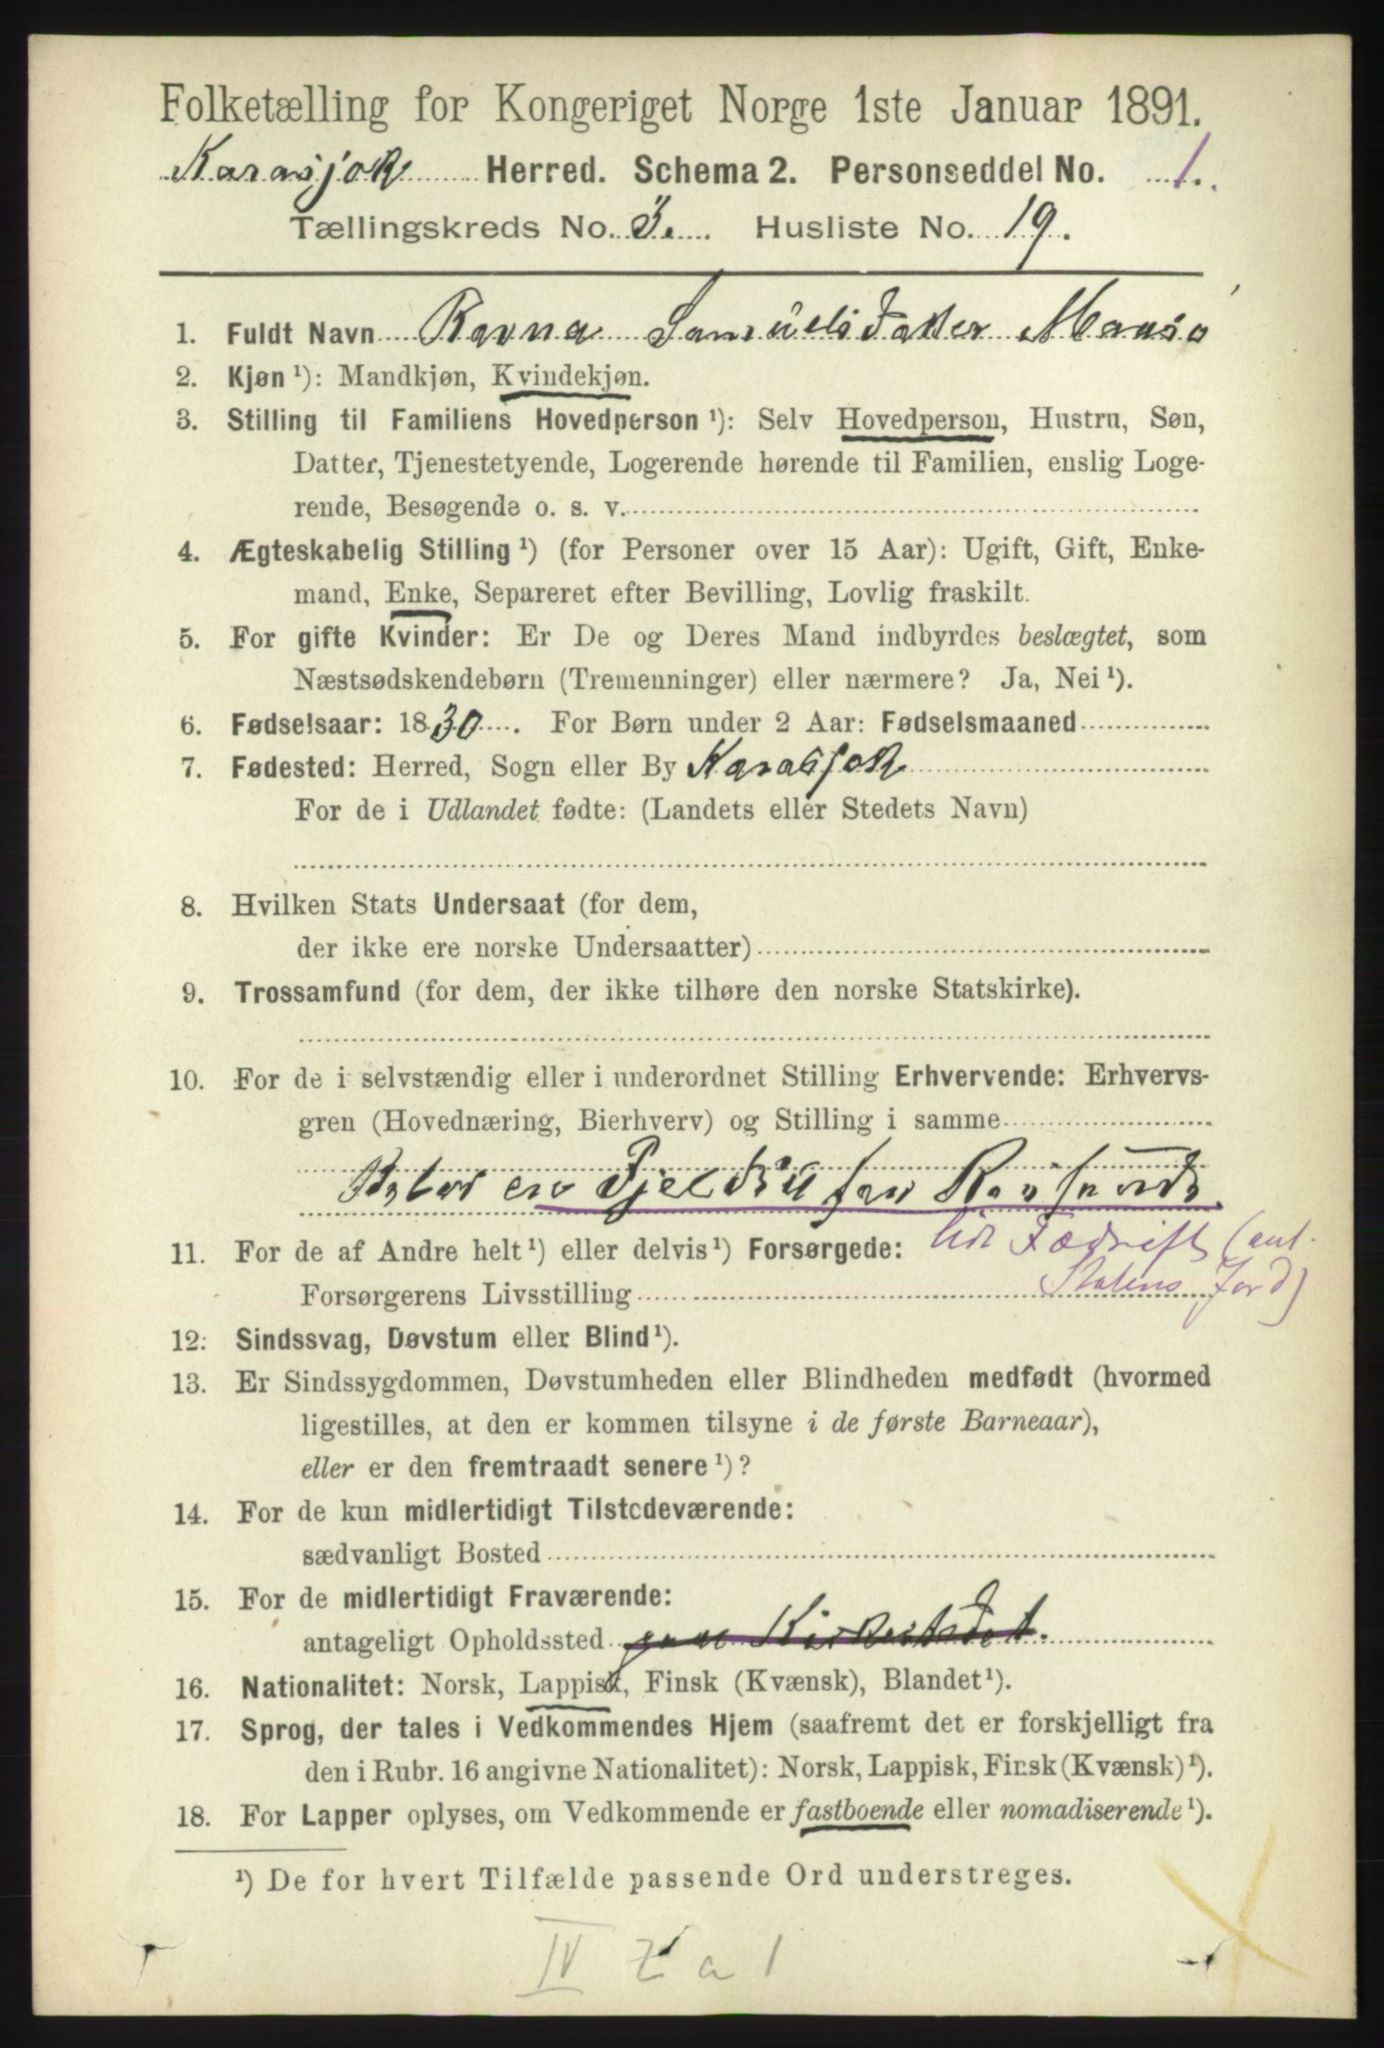 Folketælling for Kongeriget Norge 1ste Januar 1891.
Karasjok Herred. Schema 2. Personseddel No. 1.
Tællingskreds No. 3. Husliste No. 19.
1. Fuldt Navn Ravna Samuelsdatter Mausø
2. Kjøn ¹): Mandkjøn, Kvindekjøn.
3. Stilling til Familiens Hovedperson ¹): Selv Hovedperson, Hustru, Søn,
Datter, Tjenestetyende, Logerende hørende til Familien, enslig Loge-
rende, Besøgende o. s. v.
4. Ægteskabelig Stilling ¹) (for Personer over 15 Aar): Ugift, Gift, Enke-
mand, Enke, Separeret efter Bevilling, Lovlig fraskilt.
5. For gifte Kvinder: Er De og Deres Mand indbyrdes beslægtet, som
Næstsødskendebørn (Tremenninger) eller nærmere? Ja, Nei ¹).
6. Fødselsaar: 1830. For Børn under 2 Aar: Fødselsmaaned
7. Fødested: Herred, Sogn eller By Karasjok
For de i Udlandet fødte: (Landets eller Stedets Navn)
8. Hvilken Stats Undersaat (for dem,
der ikke ere norske Undersaatter)
9. Trossamfund (for dem, der ikke tilhøre den norske Statskirke).
10. For de i selvstændig eller i underordnet Stilling Erhvervende: Erhvervs-
gren (Hovednæring, Bierhverv) og Stilling i samme
en Fjeldstue
11. For de af Andre helt ¹) eller delvis ¹) Forsørgede: lidt Fædrift (ant.
Forsørgerens Livsstilling Statens Jord)
12. Sindssvag, Døvstum eller Blind ¹).
13. Er Sindssygdommen, Døvstumheden eller Blindheden medfødt (hvormed
ligestilles, at den er kommen tilsyne i de første Barneaar),
eller er den fremtraadt senere ¹)?
14. For de kun midlertidigt Tilstedeværende:
sædvanligt Bosted
15. For de midlertidigt Fraværende:
antageligt Opholdssted paa Kirkestedet.
16. Nationalitet: Norsk, Lappisk, Finsk (Kvænsk), Blandet ¹).
17. Sprog, der tales i Vedkommendes Hjem (saafremt det er forskjelligt fra
den i Rubr. 16 angivne Nationalitet): Norsk, Lappisk, Finsk (Kvænsk) ¹).
18. For Lapper oplyses, om Vedkommende er fastboende eller nomadiserende ¹).
¹) De for hvert Tilfælde passende Ord understreges.
IV Z a 1